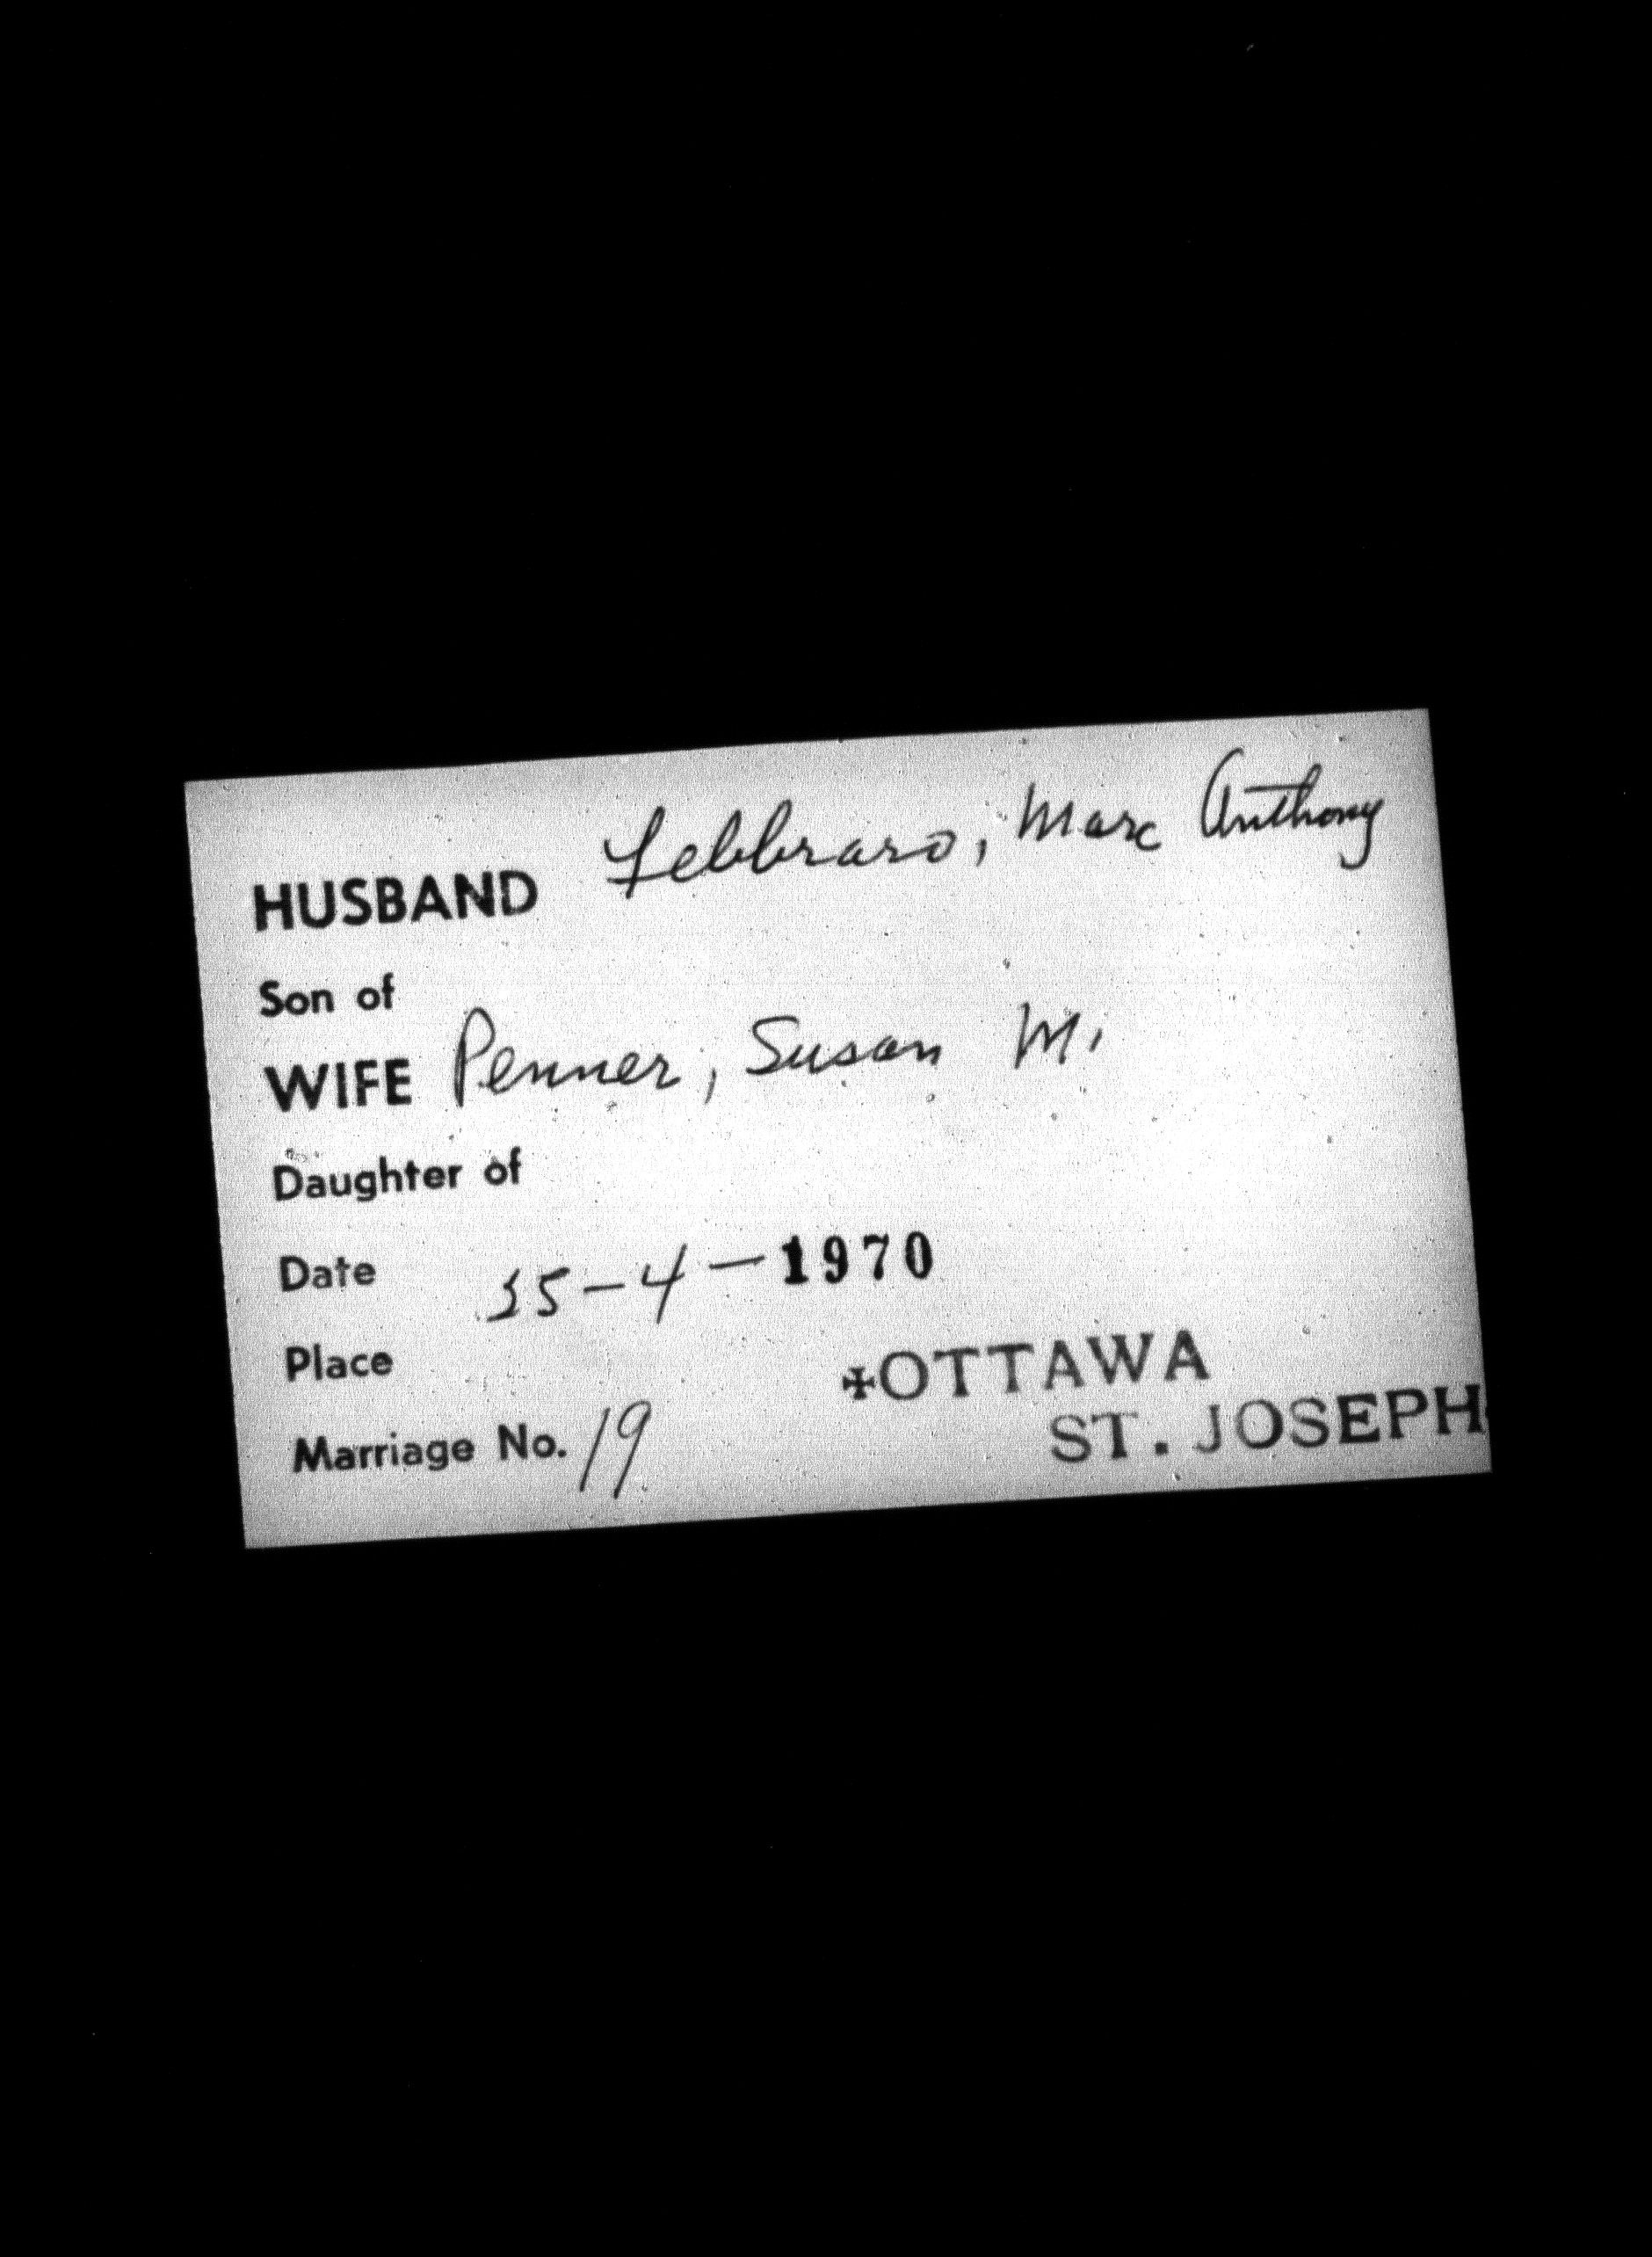 HUSBAND Febbraro, Marc Anthony
Son of
WIFE Penner, Susan M.
Daughter of
Date 25-4-1970
Place ✠OTTAWA
ST. JOSEPH
Marriage No. 19